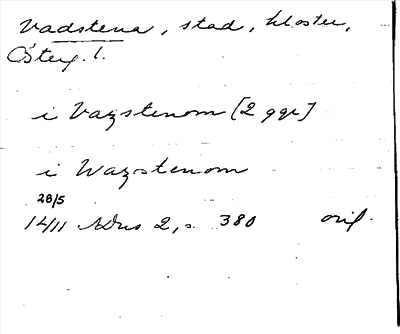 Vadstena, stad, kloster,
Österg. l.
i Vazstenom [2 ggr]
i Wazstenom
28/5
1411 SDns 2, s. 380 orig.